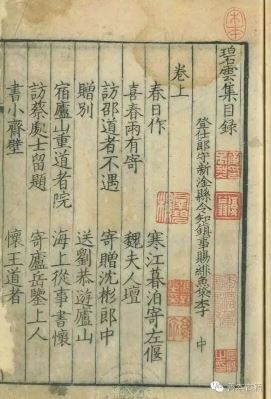 碧雲集目録
登仕郎守新淦縣令知鎮事賜緋魚袋李 中
卷上
春日作 寒江暮泊寄左偃
喜春雨有寄 魏夫人壇
訪邵道者不遇 寄贈沈彬郎中
贈別 送劉恭遊廬山
宿廬山重道者院 海上從事書懷
訪蔡處士留題 寄廬岳鑒上人
書小齋壁 懷王道者
宋本